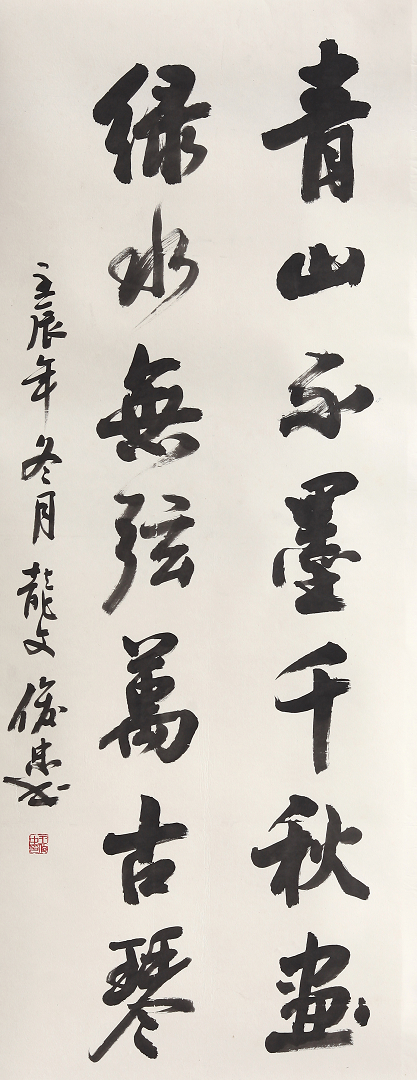 青山不墨千秋畫
綠水無弦萬古琴
壬辰年冬月龍文俊忠書